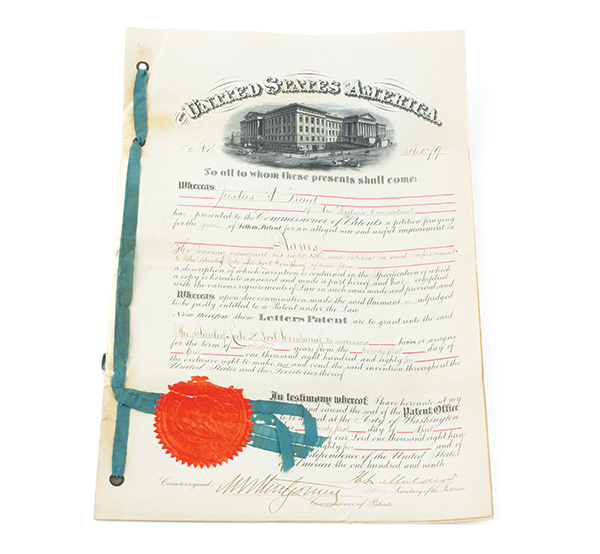 The UNITED STATES OF AMERICA,
No. 316,079
To all to whom these presents shall come:
Whereas Justus A Traut
of New Britain Connecticut
has presented to the Commissioner of Patents a petition praying
for the grant of Letters Patent for an alleged new and useful improvement in
Planes
to The Stanley Rule and Level Company of same place
a description of which invention is contained in the Specification of which
a copy is hereunto annexed and made a part hereof and has complied
with the various requirements of Law in such cases made and provided and
Whereas upon due examination made the said Claimant is adjudged
to be justly entitled to a Patent under the Law.
Now therefore these Letters Patent are to grant unto the said
The Stanley Rule & Level Company its successors or assigns
for the term of seventeen years from the twenty first day of
April one thousand eight hundred and eighty five
the exclusive right to make, use and vend the said invention throughout the
United States and the Territories thereof.
In testimony whereof I have hereunto set my
and caused the seal of the Patent Office
to be affixed at the City of Washington
day of April
our Lord one thousand eight hun-
eighty five and of
Independence of the United States
of America the one hundred and ninth.
Countersigned
Secretary of the Interior.
Commissioner of Patents.